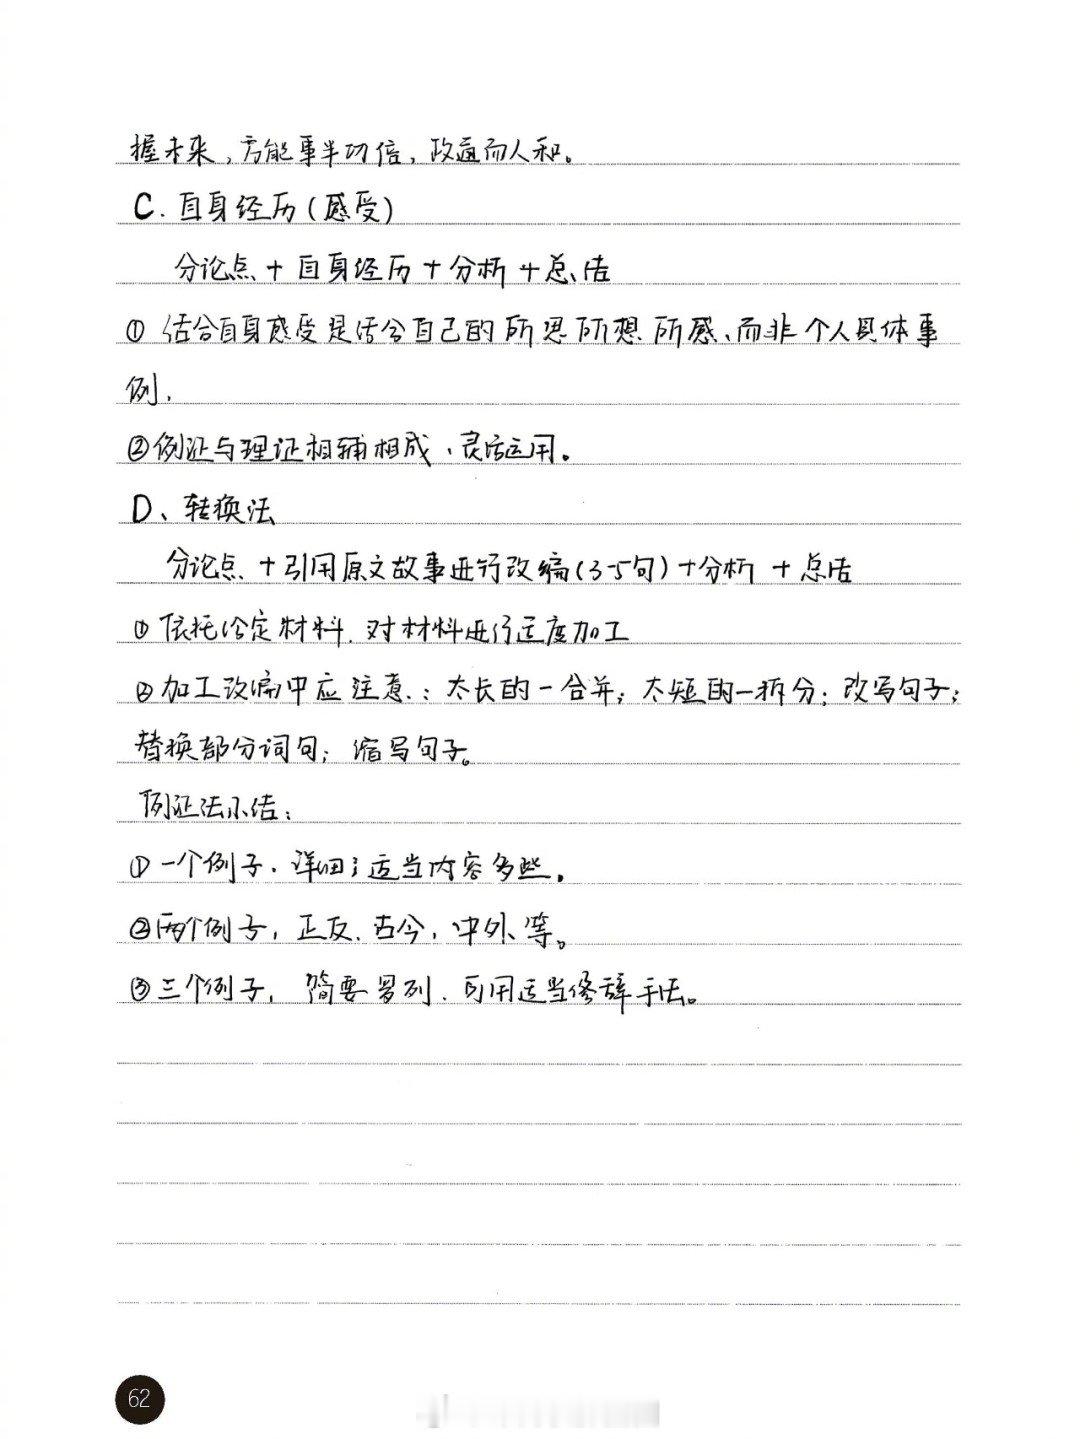 握未来，方能事半功倍，政通而人和。
C. 自身经历（感受）
分论点 + 自身经历 + 分析 + 总结
① 结合自身感受是结合自己的所思所想所感、而非个人具体事
例.
②例证与理证相辅相成、灵活运用。
D、转换法
分论点 + 引用原文故事进行改编(3-5句) + 分析 + 总结
① 依托给定材料. 对材料进行适度加工
② 加工改编中应注意：太长的一合并；太短的一拆分；改写句子；
替换部分词句；缩写句子。
例证法小结：
① 一个例子. 详细；适当内容多些.
②两个例子，正反、古今，中外、等。
③三个例子， 简要罗列. 可用适当修辞手法。
62